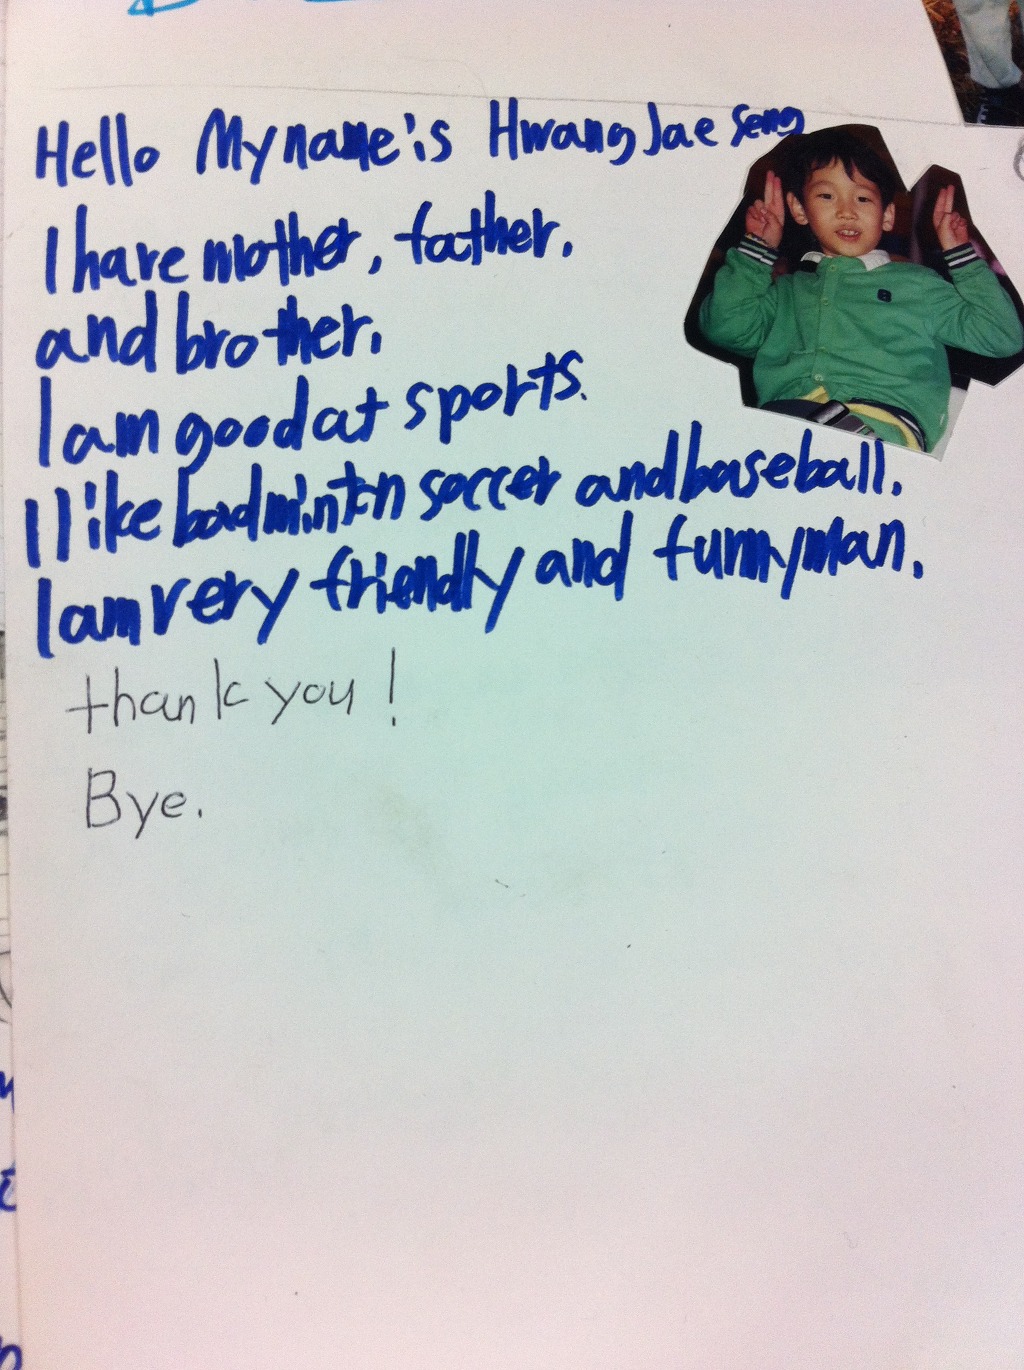 Hello My name is Hwang Jae Seng
I have mother, father,
and brother.
I am good at sports.
I like badminton soccer and baseball.
I am very friendly and funny man.
thank you!
Bye.